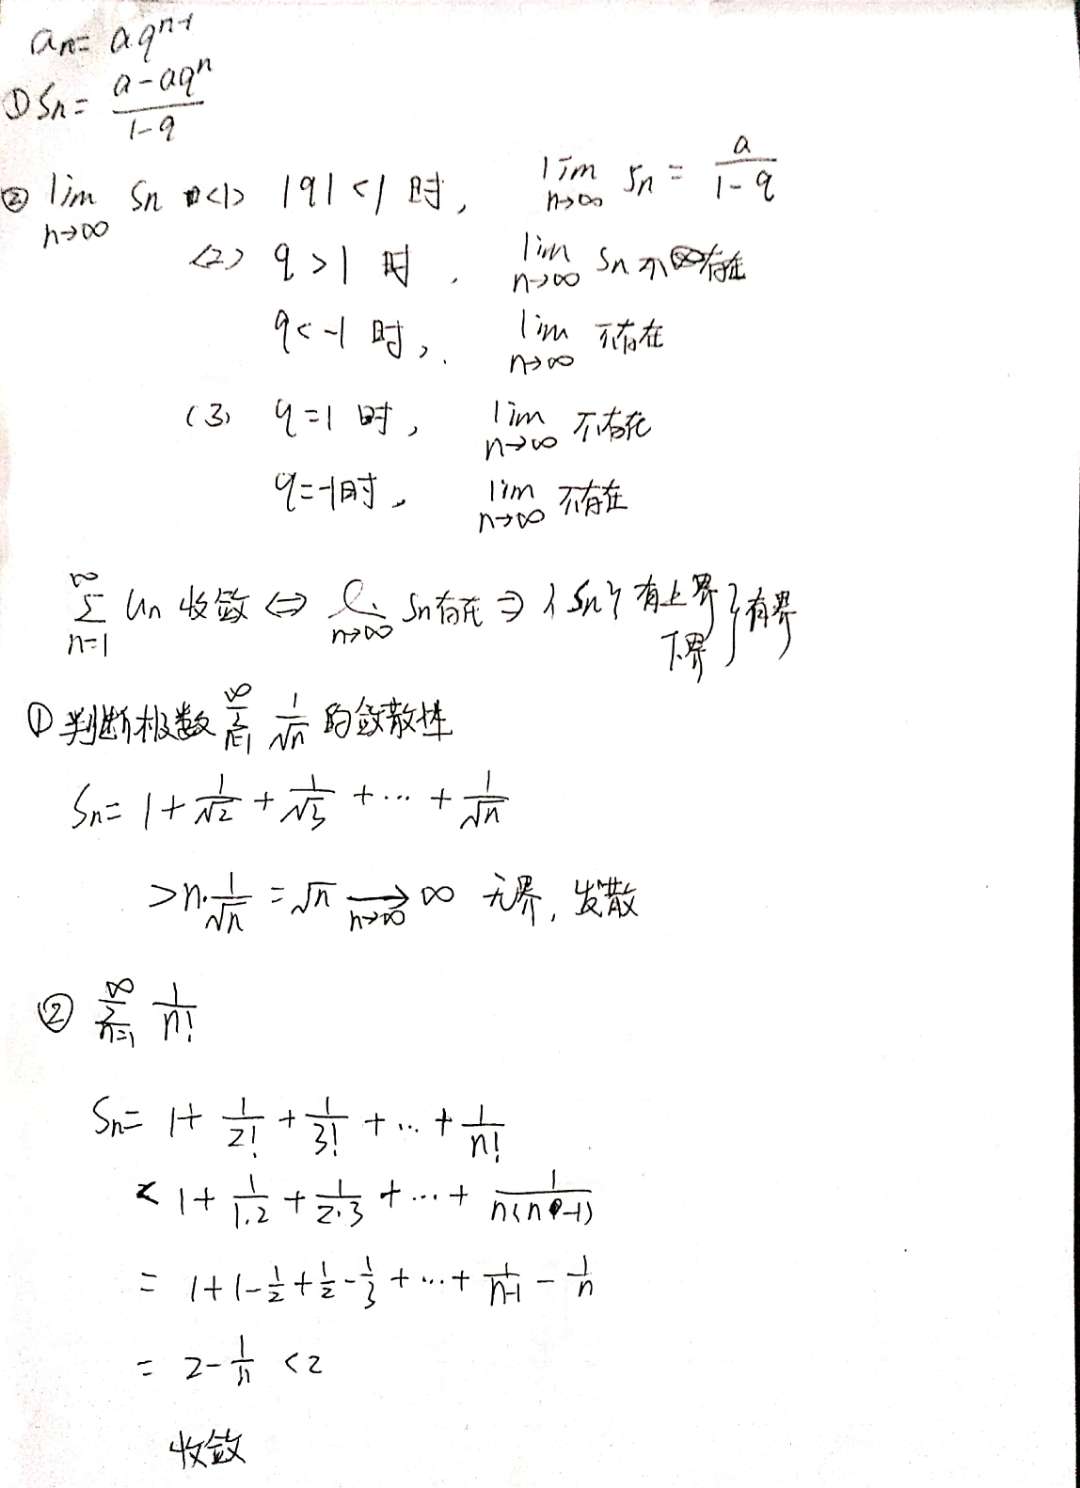 aₙ = aqⁿ⁻¹
① Sₙ = (a - aqⁿ)/(1-q)
② lim n→∞ Sₙ <1> |q| < 1 时, lim n→∞ Sₙ = a/(1-q)
<2> q > 1 时, lim n→∞ Sₙ 不存在
q < -1 时, lim n→∞ 不存在
(3) q = 1 时, lim n→∞ 不存在
q = -1时, lim n→∞ 不存在
∑ n=1 ∞ Uₙ 收敛 ⇔ lim n→∞ Sₙ存在 ⇒ {Sₙ} 有上界 下界 } 有界
① 判断极数 ∑ n=1 ∞ 1/√n 的敛散性
Sₙ = 1 + 1/√2 + 1/√3 + ... + 1/√n
> n·1/√n = √n → n→∞ ∞ 无界, 发散
② ∑ n=1 ∞ 1/n!
Sₙ = 1 + 1/2! + 1/3! + ... + 1/n!
< 1 + 1/1·2 + 1/2·3 + ... + 1/n(n-1)
= 1 + 1 - 1/2 + 1/2 - 1/3 + ... + 1/n-1 - 1/n
= 2 - 1/n < 2
收敛